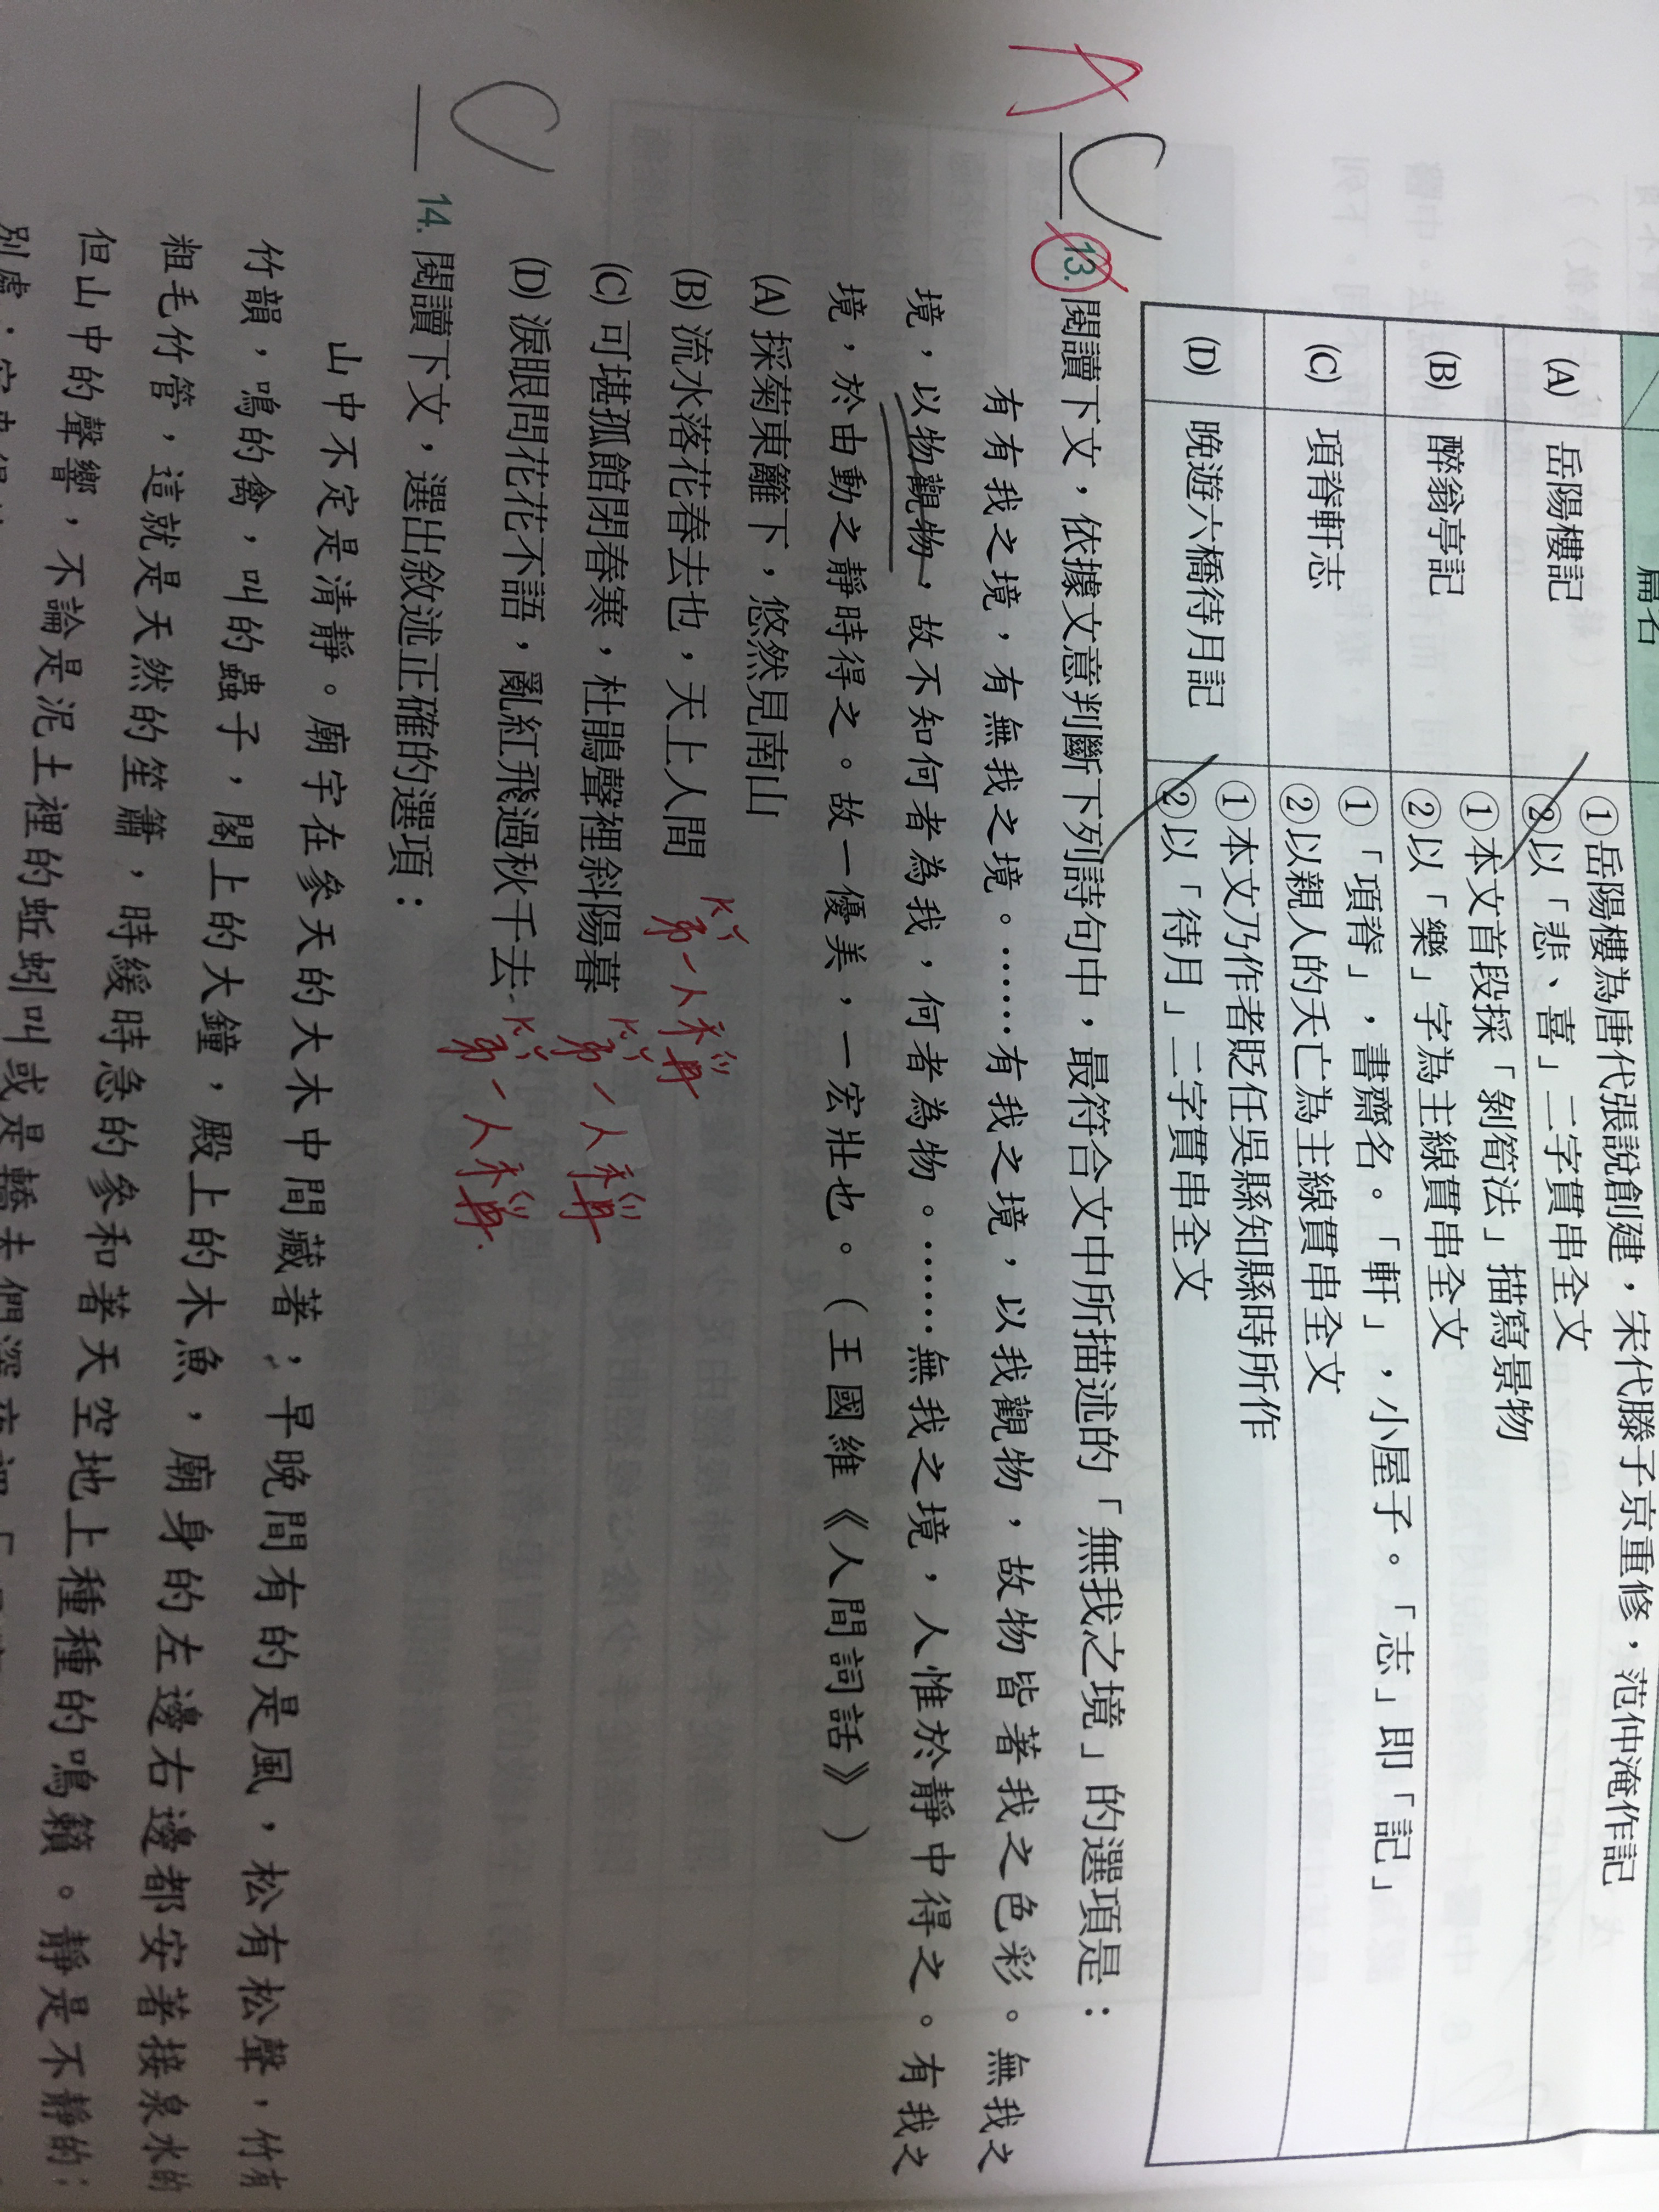 篇名
(A) 岳陽樓記 ①岳陽樓為唐代張說創建，宋代滕子京重修，范仲淹作記
②以「悲、喜」二字貫串全文
(B) 醉翁亭記 ①本文首段採「剝筍法」描寫景物
②以「樂」字為主線貫串全文
(C) 項脊軒志 ①「項脊」，書齋名。「軒」，小屋子。「志」即「記」
②以親人的夭亡為主線貫串全文
(D) 晚遊六橋待月記 ①本文乃作者貶任吳縣知縣時所作
②以「待月」二字貫串全文
A C 13. 閱讀下文，依據文意判斷下列詩句中，最符合文中所描述的「無我之境」的選項是：
有有我之境，有無我之境。……有我之境，以我觀物，故物皆著我之色彩。無我之
境，以物觀物，故不知何者為我，何者為物。……無我之境，人惟於靜中得之。有我之
境，於由動之靜時得之。故一優美，一宏壯也。（王國維《人間詞話》）
(A) 採菊東籬下，悠然見南山
(B) 流水落花春去也，天上人間 第一人稱
(C) 可堪孤館閉春寒，杜鵑聲裡斜陽暮 第一人稱
(D) 淚眼問花花不語，亂紅飛過秋千去 第一人稱
C 14. 閱讀下文，選出敘述正確的選項：
山中不定是清靜。廟宇在參天的大木中間藏著，早晚間有的是風，松有松聲，竹有
竹韻，鳴的禽，叫的蟲子，閣上的大鐘，殿上的木魚，廟身的左邊右邊都安著接泉水的
粗毛竹管，這就是天然的笙簫，時緩時急的參和著天空地上種種的鳴籟。靜是不靜的；
但山中的聲響，不論是泥土裡的蚯蚓叫或是轎夫們深夜裡「